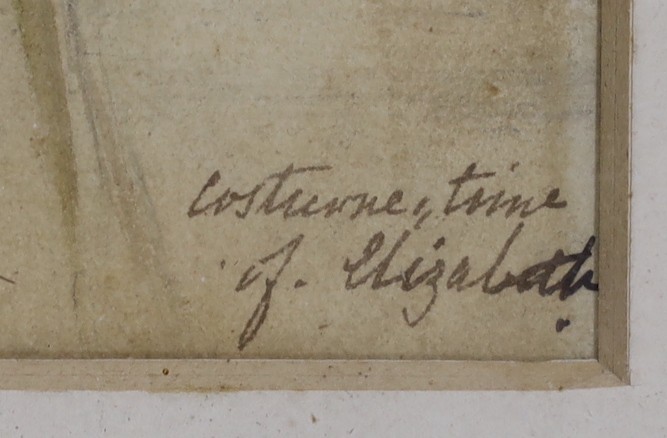 Costume, time
of. Elizabeth